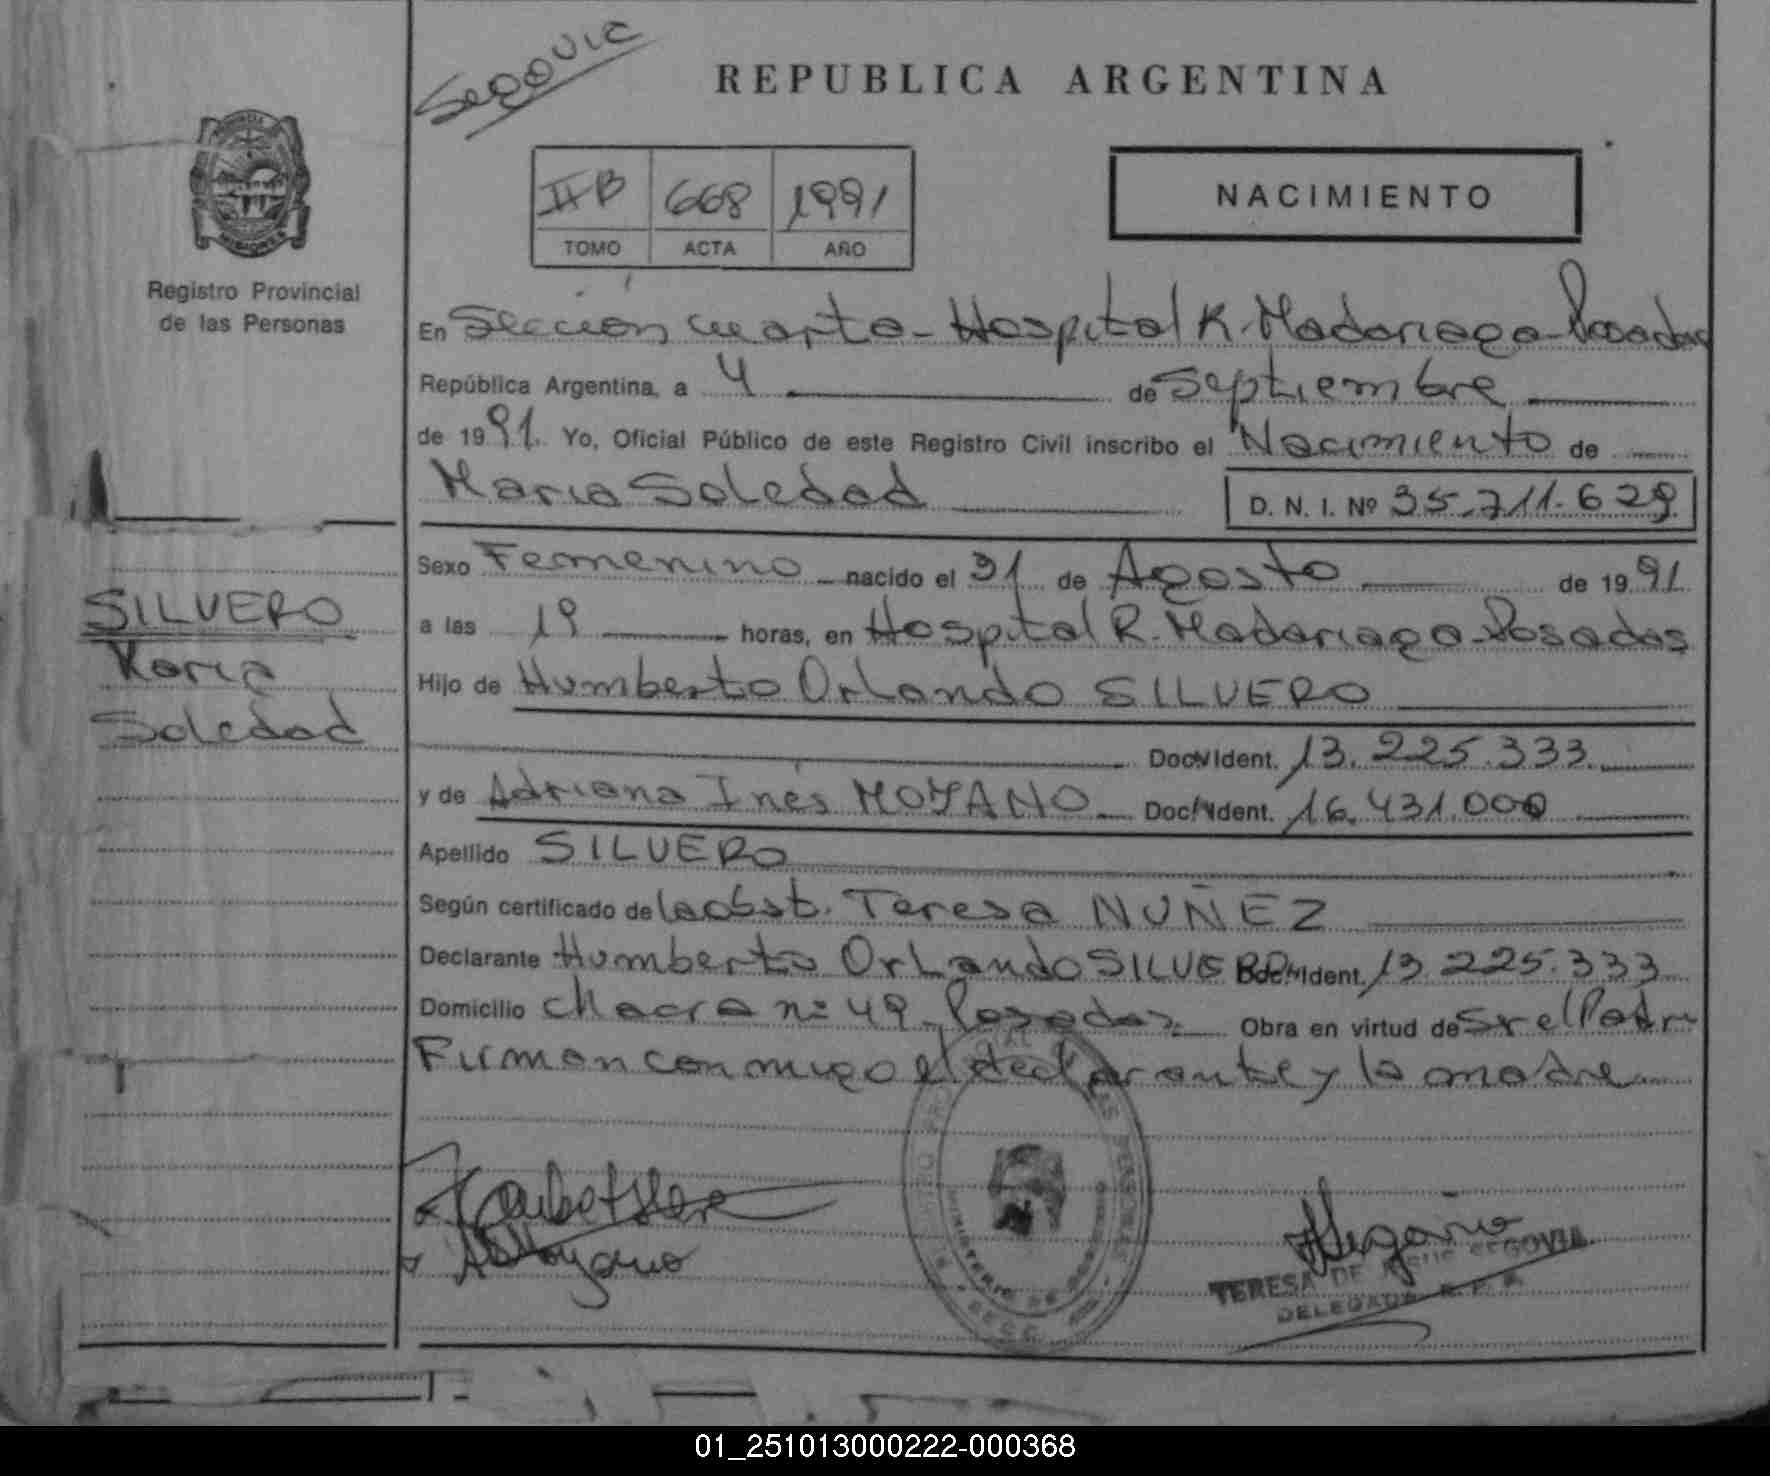 Segovia
REPUBLICA ARGENTINA
IIB 668 1991
TOMO ACTA AÑO
NACIMIENTO
PROVINCIA
MISIONES
Registro Provincial
de las Personas
En Sección cuarta - Hospital R. Madariaga - Posadas
República Argentina, a 4 de Septiembre
de 1991. Yo, Oficial Público de este Registro Civil inscribo el Nacimiento de
Maria Soledad D. N. I. Nº 35.711.629
Sexo Femenino nacido el 31 de Agosto de 1991
a las 19 horas, en Hospital R. Madariaga - Posadas
Hijo de Humberto Orlando SILVERO
Doc. Ident. 13.225.333
y de Adriana Inés MOYANO Doc. Ident. 16.431.000
Apellido SILVERO
Según certificado de la obst. Teresa NUÑEZ
Declarante Humberto Orlando SILVERO Doc. Ident. 13.225.333
Domicilio Chacra nº 49 - Posadas. Obra en virtud de Sr el Padre
Firman conmigo el declarante y la madre
SILVERO
Maria
Soledad
AMoyano
TERESA DE JESUS SEGOVIA
DELEGADA R.P.P.
01_251013000222-000368